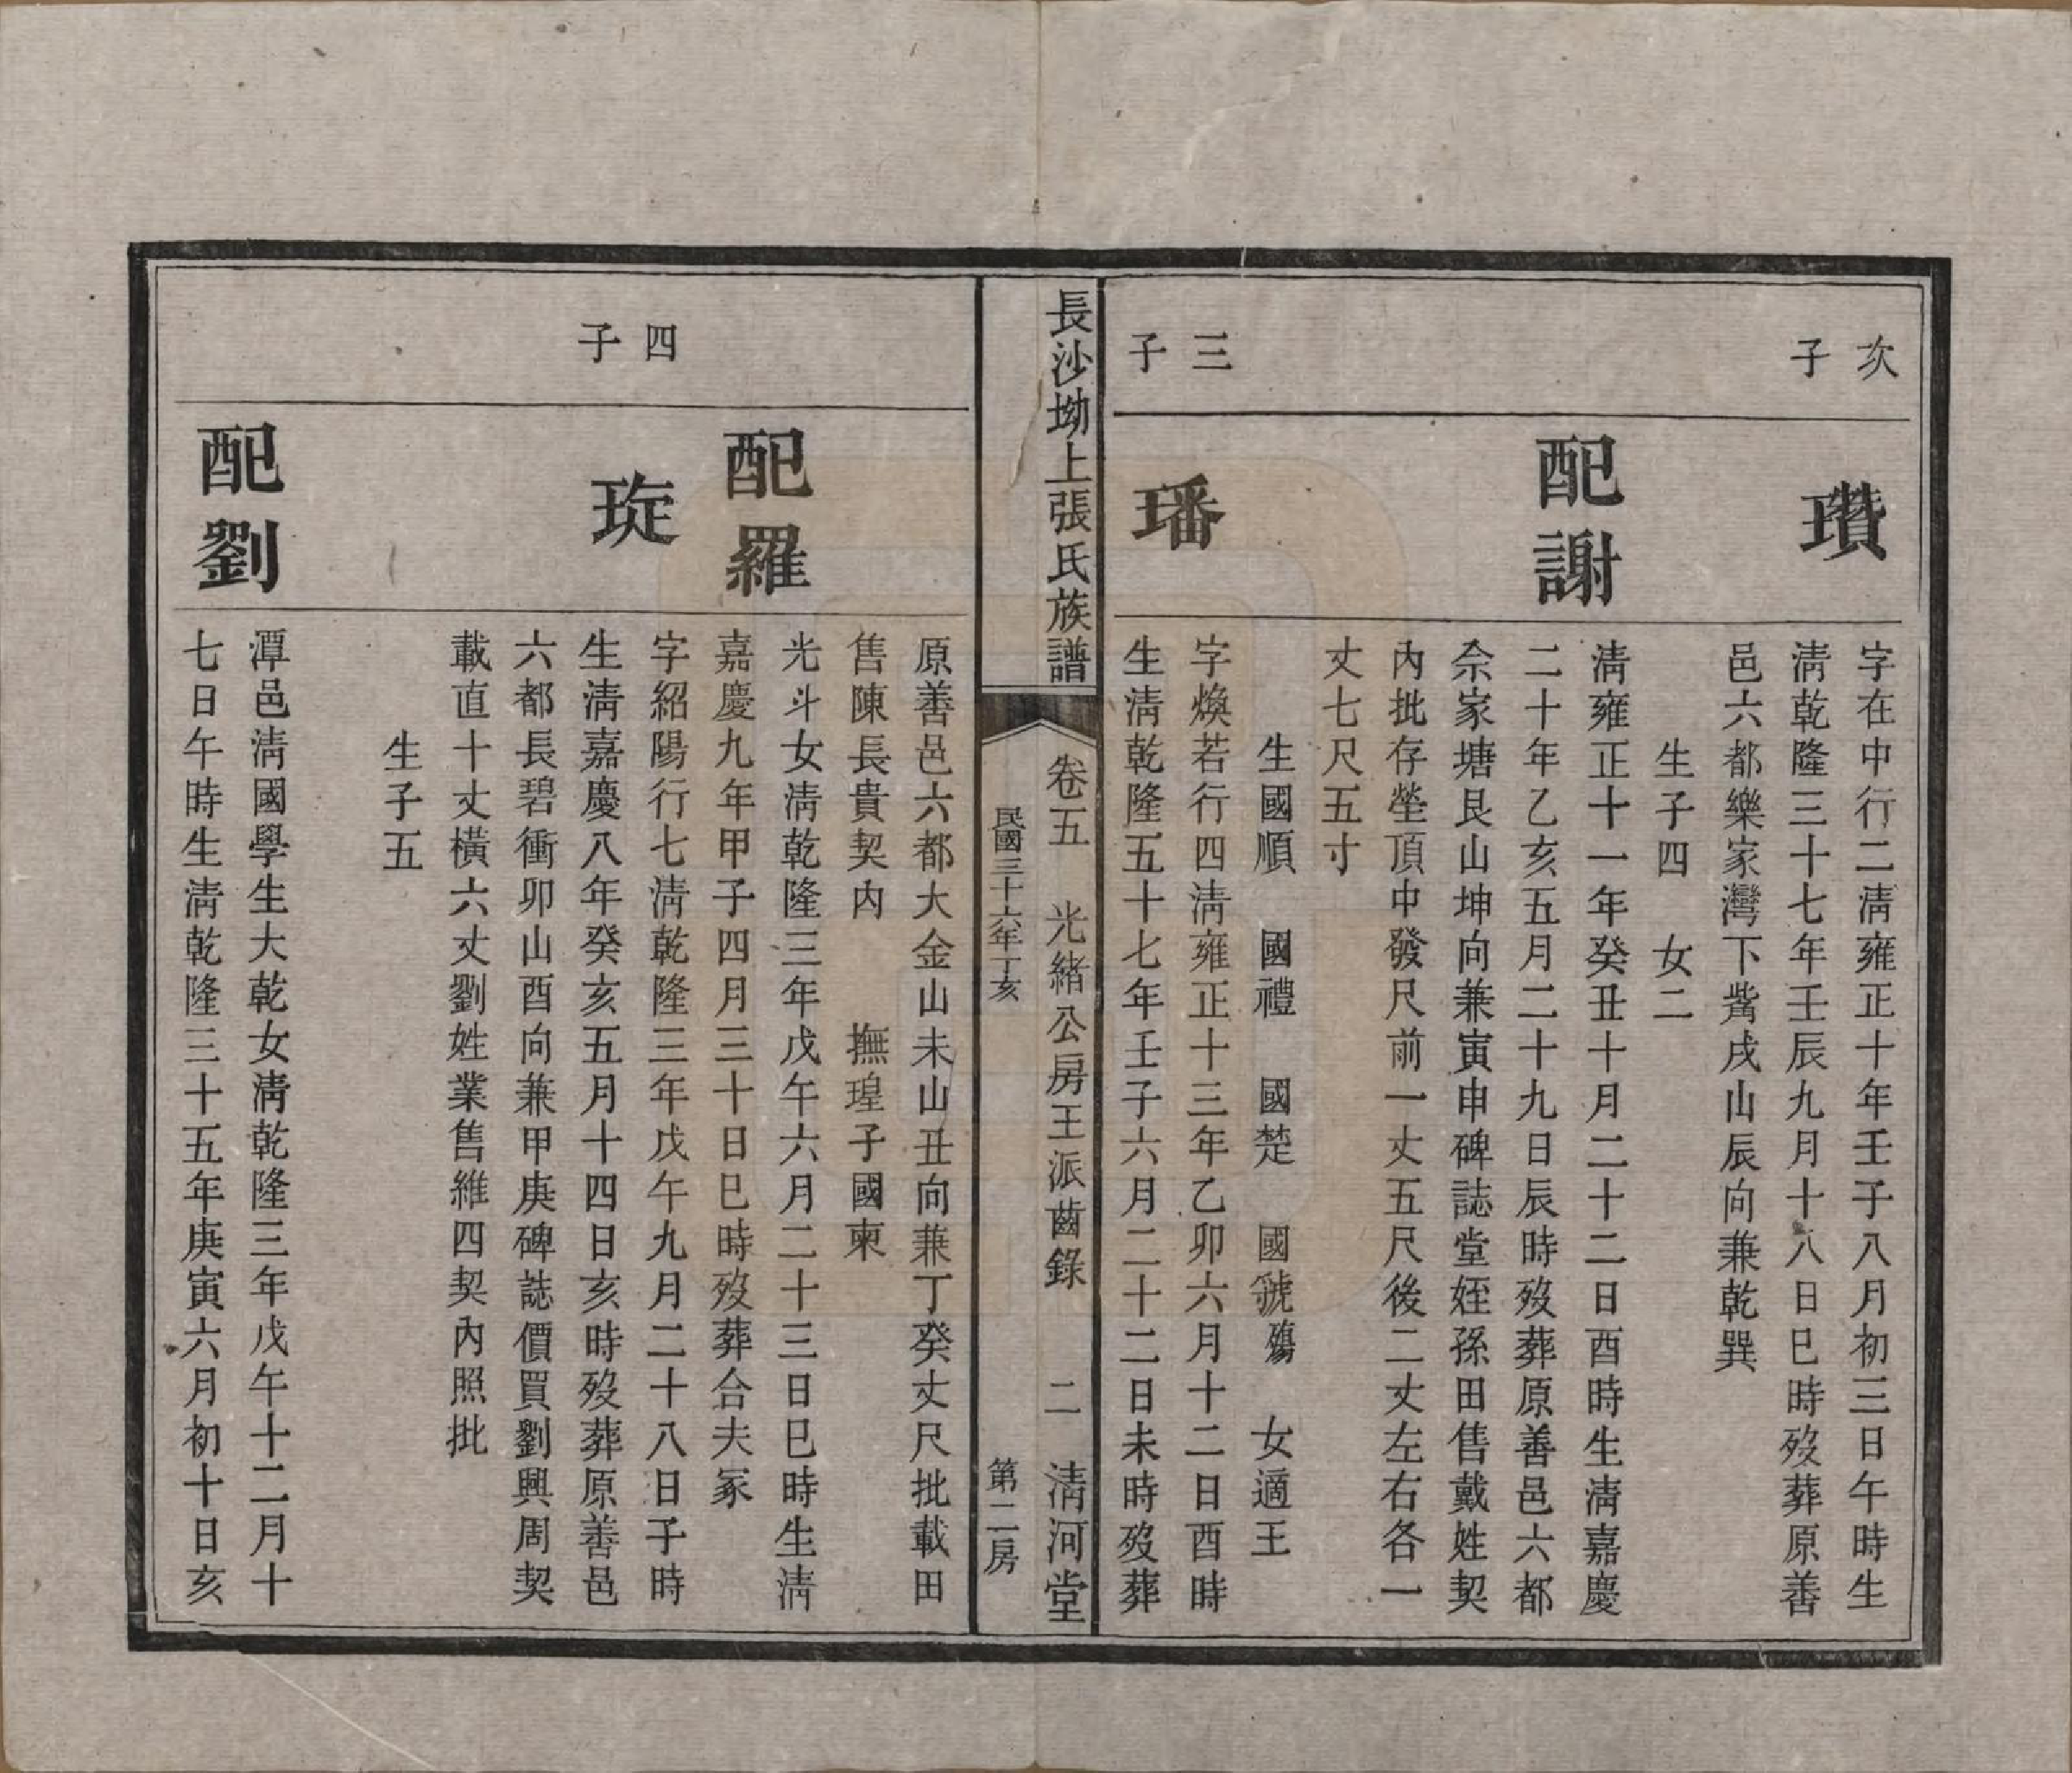 次
子
瓚
字在中行二淸雍正十年壬子八月初三日午時生
淸乾隆三十七年壬辰九月十八日巳時歿葬原善
邑六都樂家灣下嘴戌山辰向兼乾巽
生子四　女二
配謝
淸雍正十一年癸丑十月二十二日酉時生淸嘉慶
二十年乙亥五月二十九日辰時歿葬原善邑六都
佘家塘艮山坤向兼寅申碑誌堂姪孫田售戴姓契
內批存塋頂中發尺前一丈五尺後二丈左右各一
丈七尺五寸
生國順　國禮　國楚　國虢殤　女適王
三
子
璠
字煥若行四淸雍正十三年乙卯六月十二日酉時
生淸乾隆五十七年壬子六月二十二日未時歿葬
長沙坳上張氏族譜　卷五　光緒公房王派齒錄　二　淸河堂
民國三十六年丁亥　第二房
原善邑六都大金山未山丑向兼丁癸丈尺批載田
售陳長貴契內　撫瑝子國柬
配羅
光斗女淸乾隆三年戊午六月二十三日巳時生淸
嘉慶九年甲子四月三十日巳時歿葬合夫冢
四
子
琁
字紹陽行七淸乾隆三年戊午九月二十八日子時
生淸嘉慶八年癸亥五月十四日亥時歿葬原善邑
六都長碧衝卯山酉向兼甲庚碑誌價買劉興周契
載直十丈橫六丈劉姓業售維四契內照批
生子五
配劉
潭邑淸國學生大乾女淸乾隆三年戊午十二月十
七日午時生淸乾隆三十五年庚寅六月初十日亥